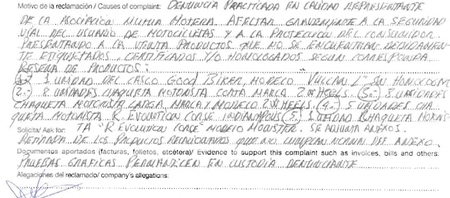 Motivo de la reclamación / Causes of complaint: DENUNCIA PRACTICADA EN CALIDAD REPRESENTANTE
DE LA ASOCIACION MUTUA MOTERA. AFECTAR GRAVEMENTE A LA SEGURIDAD
VIAL DEL USUARIO DE MOTOCICLETAS Y A LA PROTECCION DEL CONSUMIDOR
PRESENTANDO A LA VENTA PRODUCTOS QUE NO SE ENCUENTRAN DEBIDAMEN-
TE ETIQUETADOS, CERTIFICADOS Y/O HOMOLOGADOS SEGUN CORRESPONDA
RESEÑA DE PRODUCTOS:
1 UNIDAD DEL CASCO GOOD BIKER, MODELO VULCAN L SIN HOMOLOGAR
(2.- 8 UNIDADES CHAQUETA MOTORISTA CORTA MARCA 2 WHEELS 8 UNIDADES
CHAQUETA MOTORISTA LARGA, MARCA Y MODELO 2 WHEELS (4.- 5 UNIDADES CHA
QUETA MOTORISTA R EVOLUTION CORSE INDIANAPOLIS (5.- 1 UNIDAD CHAQUETA
Solicita/ Ask for: TA "R EVOLUTION CORSE" MODELO MOUSTER. SE ADJUNTA ANEXOS.
RETIRADA DE LOS PRODUCTOS DENUNCIADOS QUE NO CUMPLAN
Documentos aportados (facturas, folletos, etcétera)/ Evidence to support this complaint such as invoices, bills and others:
PRUEBAS GRAFICAS PERMANECEN EN CUSTODIA DENUNCIANTE
Alegaciones del reclamado/ company's allegations: